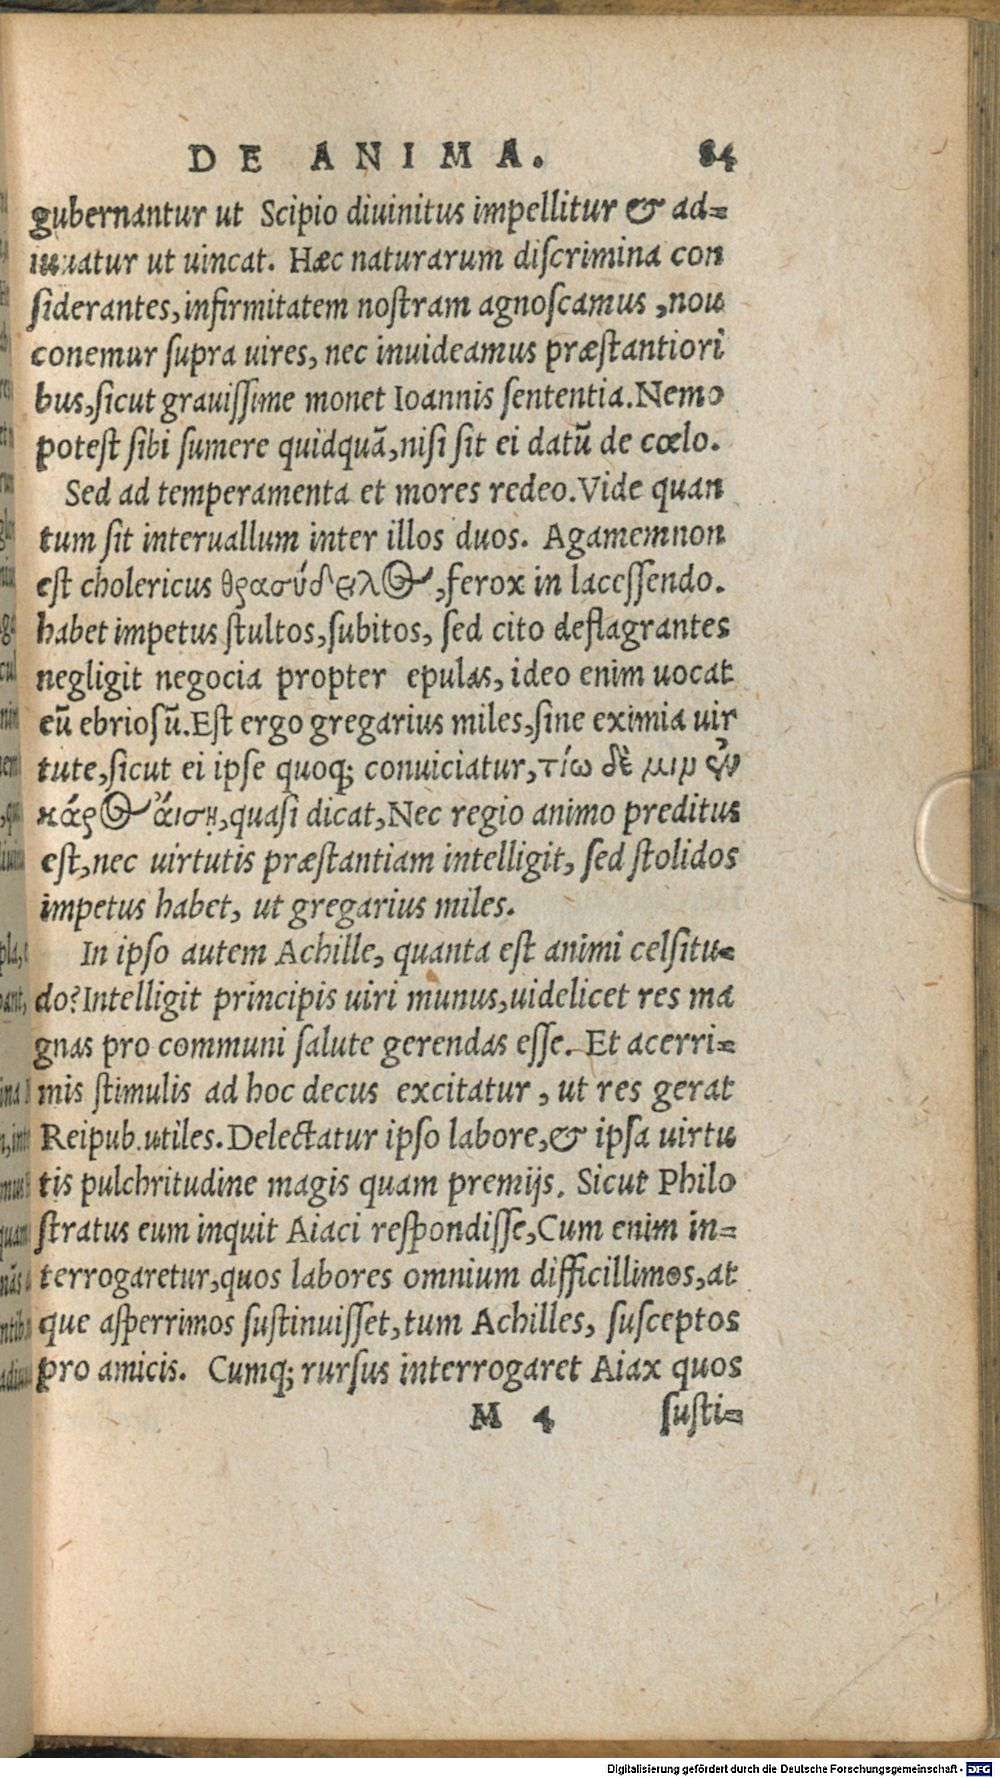 DE ANIMA. 84
gubernantur ut Scipio diuinitus impellitur & ad=
iuuatur ut uincat. Hæc naturarum discrimina con
siderantes, infirmitatem nostram agnoscamus, non
conemur supra uires, nec inuideamus præstantiori
bus, sicut grauissime monet Ioannis sententia. Nemo
potest sibi sumere quidquã, nisi sit ei datũ de cœlo.
Sed ad temperamenta et mores redeo. Vide quan
tum sit interuallum inter illos duos. Agamemnon
est cholericus θρασύδειλος, ferox in lacessendo.
habet impetus stultos, subitos, sed cito deflagrantes
negligit negocia propter epulas, ideo enim uocat
eũ ebriosũ. Est ergo gregarius miles, sine eximia uir
tute, sicut ei ipse quoq; conuiciatur, τίω δέ μιν ἐν
κάρος ἄιση, quasi dicat, Nec regio animo preditus
est, nec uirtutis præstantiam intelligit, sed stolidos
impetus habet, ut gregarius miles.
In ipso autem Achille, quanta est animi celsitu=
do? Intelligit principis uiri munus, uidelicet res ma
gnas pro communi salute gerendas esse. Et acerri=
mis stimulis ad hoc decus excitatur, ut res gerat
Reipub. utiles. Delectatur ipso labore, & ipsa uirtu
tis pulchritudine magis quam premijs. Sicut Philo
stratus eum inquit Aiaci respondisse, Cum enim in=
terrogaretur, quos labores omnium difficillimos, at
que asperrimos sustinuisset, tum Achilles, susceptos
pro amicis. Cumq; rursus interrogaret Aiax quos
M 4 susti=
Digitalisierung gefördert durch die Deutsche Forschungsgemeinschaft - DFG